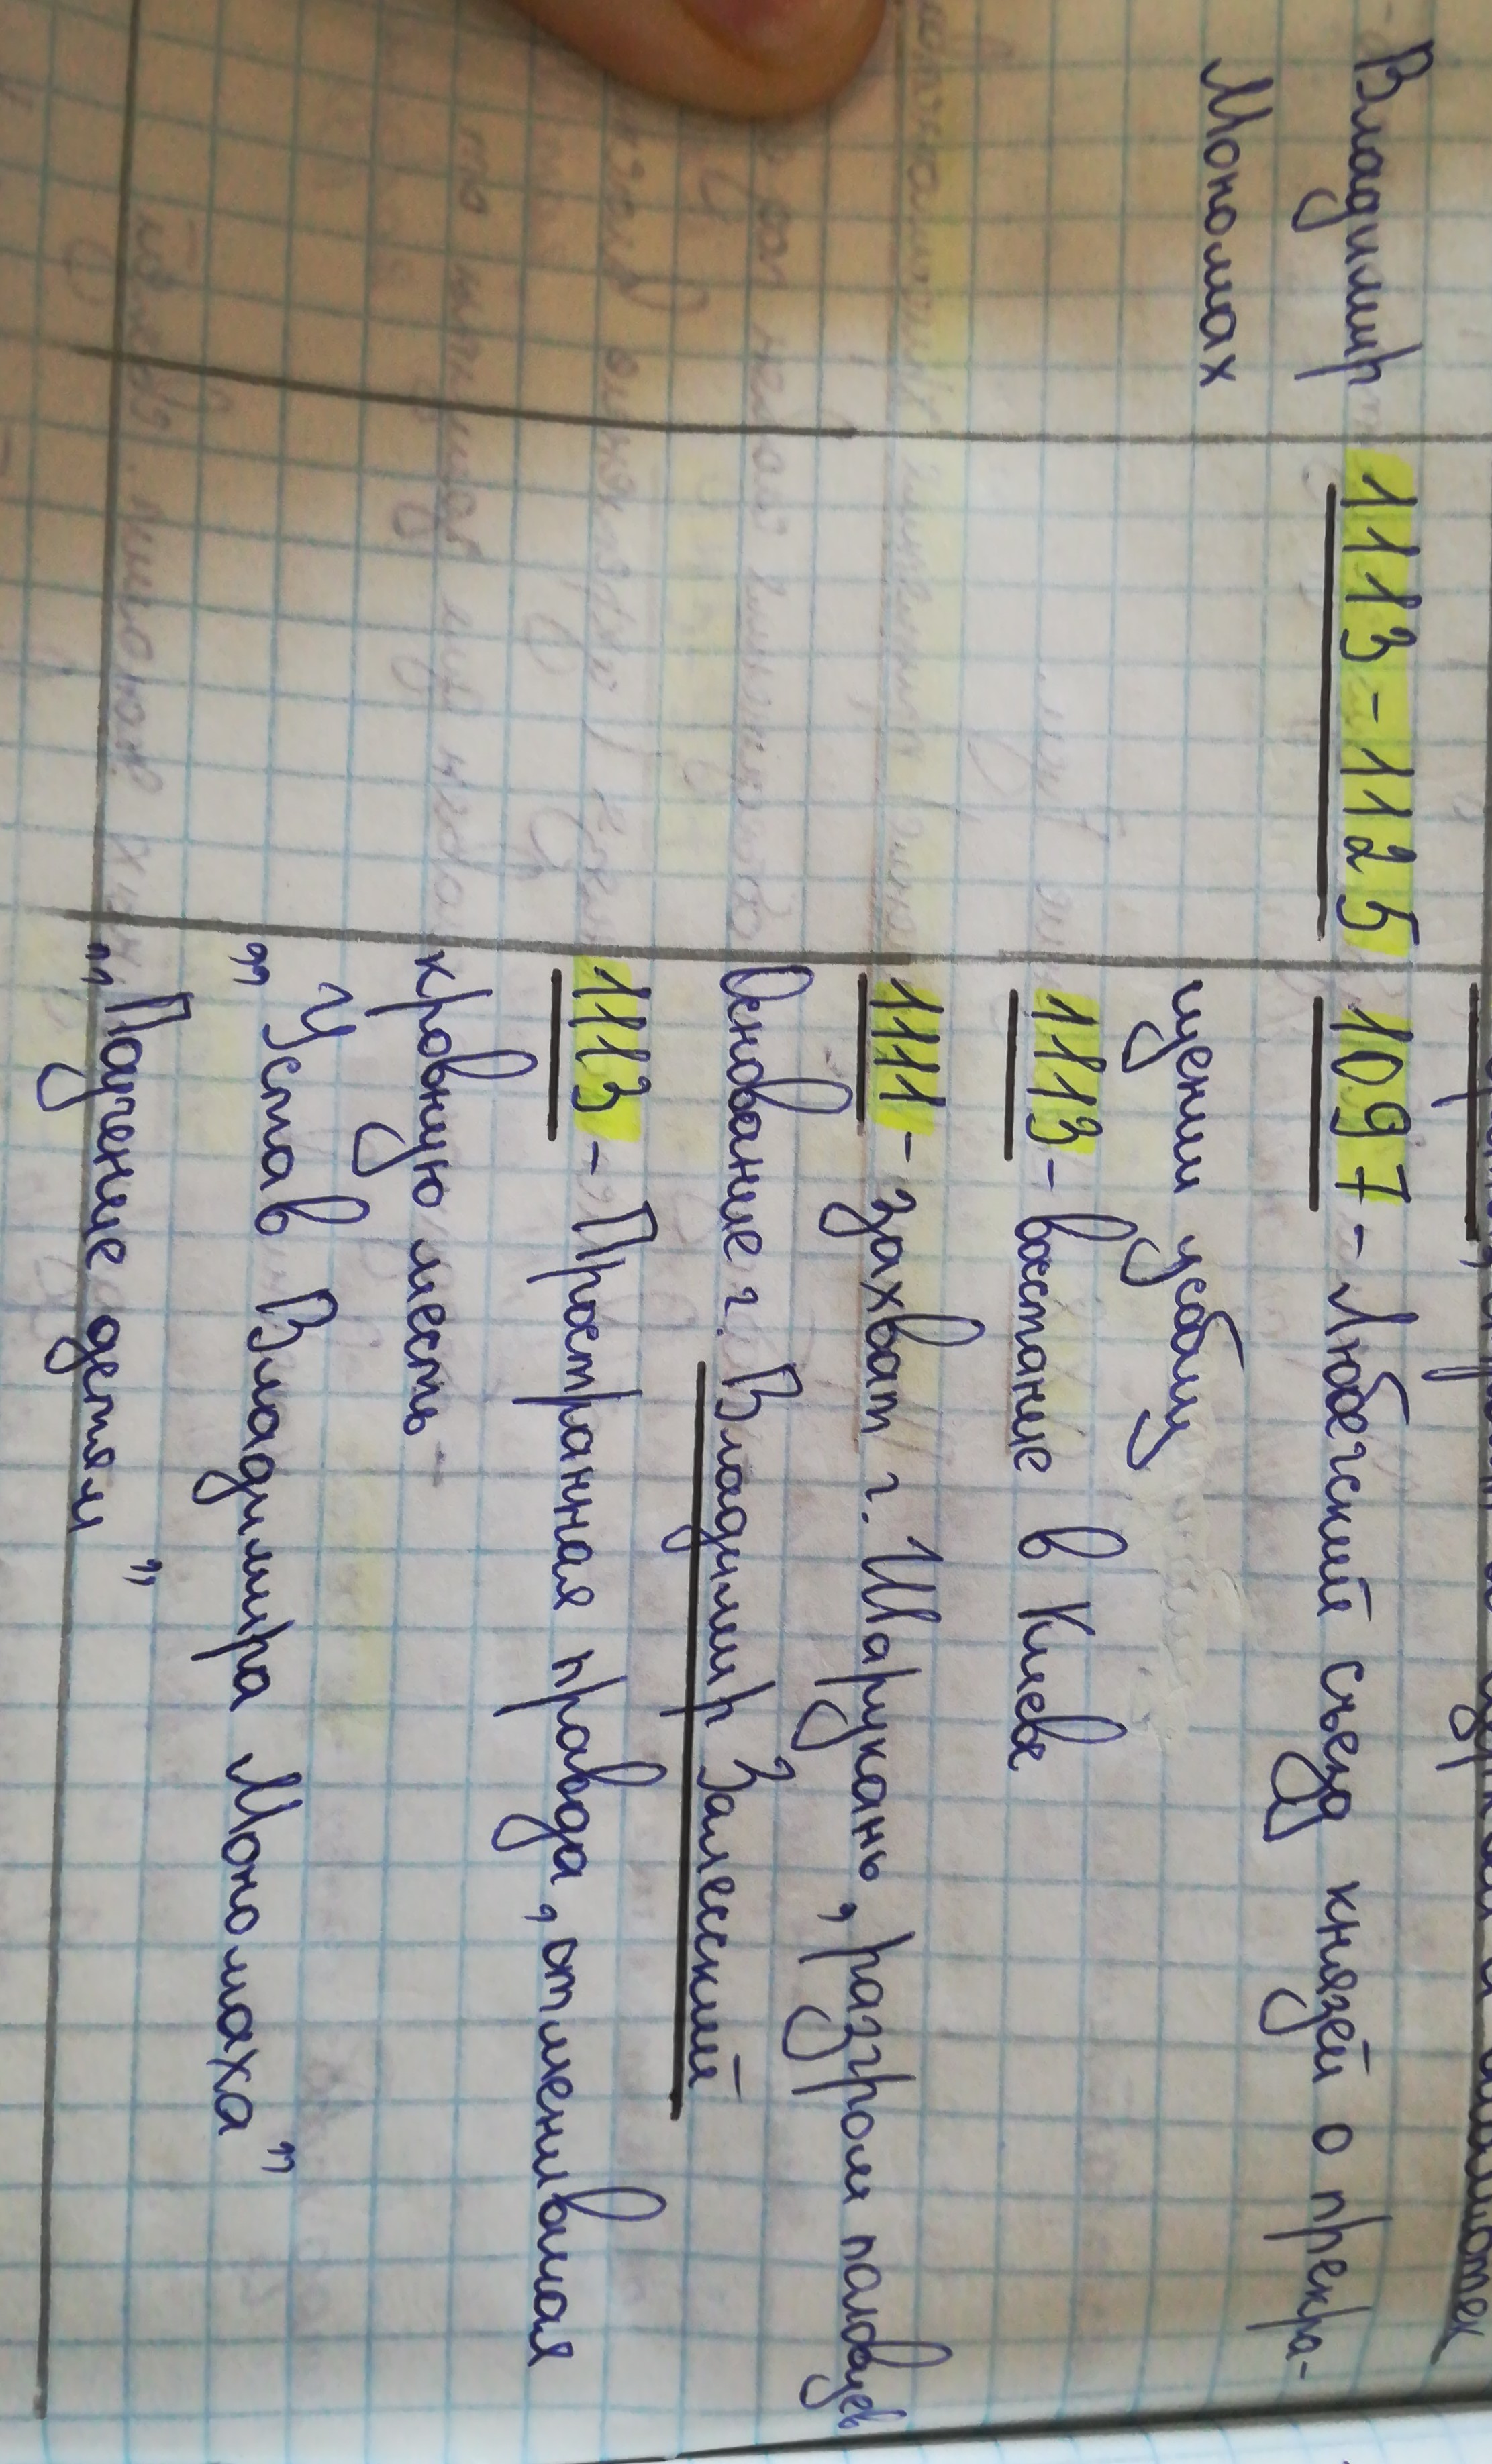 Владимир
Мономах
1113-1125
1097 - Любечский съезд князей о прекра-
щении усобиц
1113 - востание в Киеве
1111 - захват г. Шарукань, разгром половцев
Основание г. Владимир Залесский
1113 - Пространная правда, отменившая
кровную месть
„Устав Владимира Мономаха”
„Поучение детям”